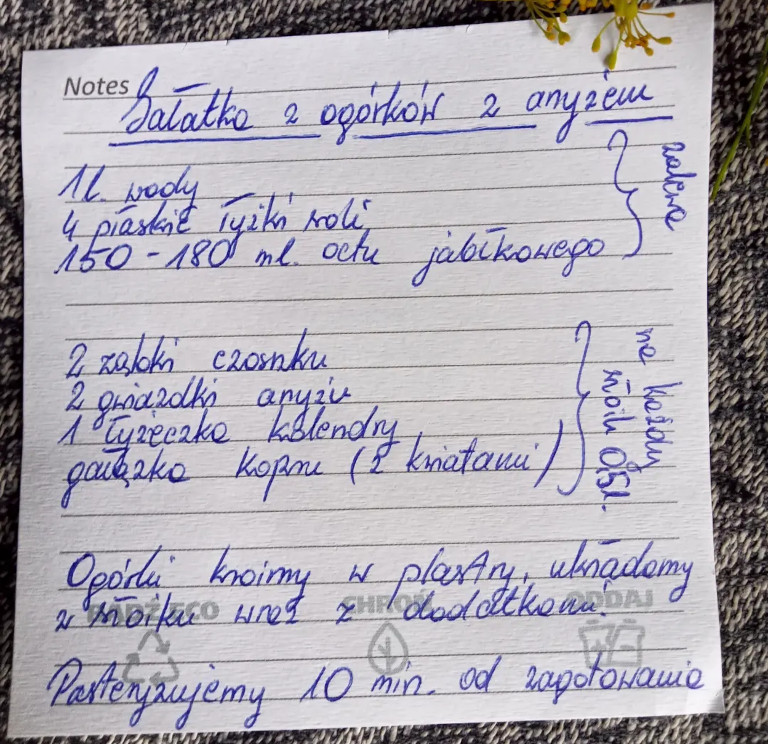 Notes
Sałatka z ogórków z anyżem
1 l. wody
4 płaskie łyżki soli
150-180 ml. octu jabłkowego
zalewa
2 ząbki czosnku
2 gwiazdki anyżu
1 łyżeczka kolendry
gałązka kopru (z kwiatami)
na każdy
słoik 0,5l.
Ogórki kroimy w plastry, układamy
w słoiku wraz z dodatkami.
BĄDŹ EKO CHROŃ ODDAJ
Pasteryzujemy 10 min. od zagotowania